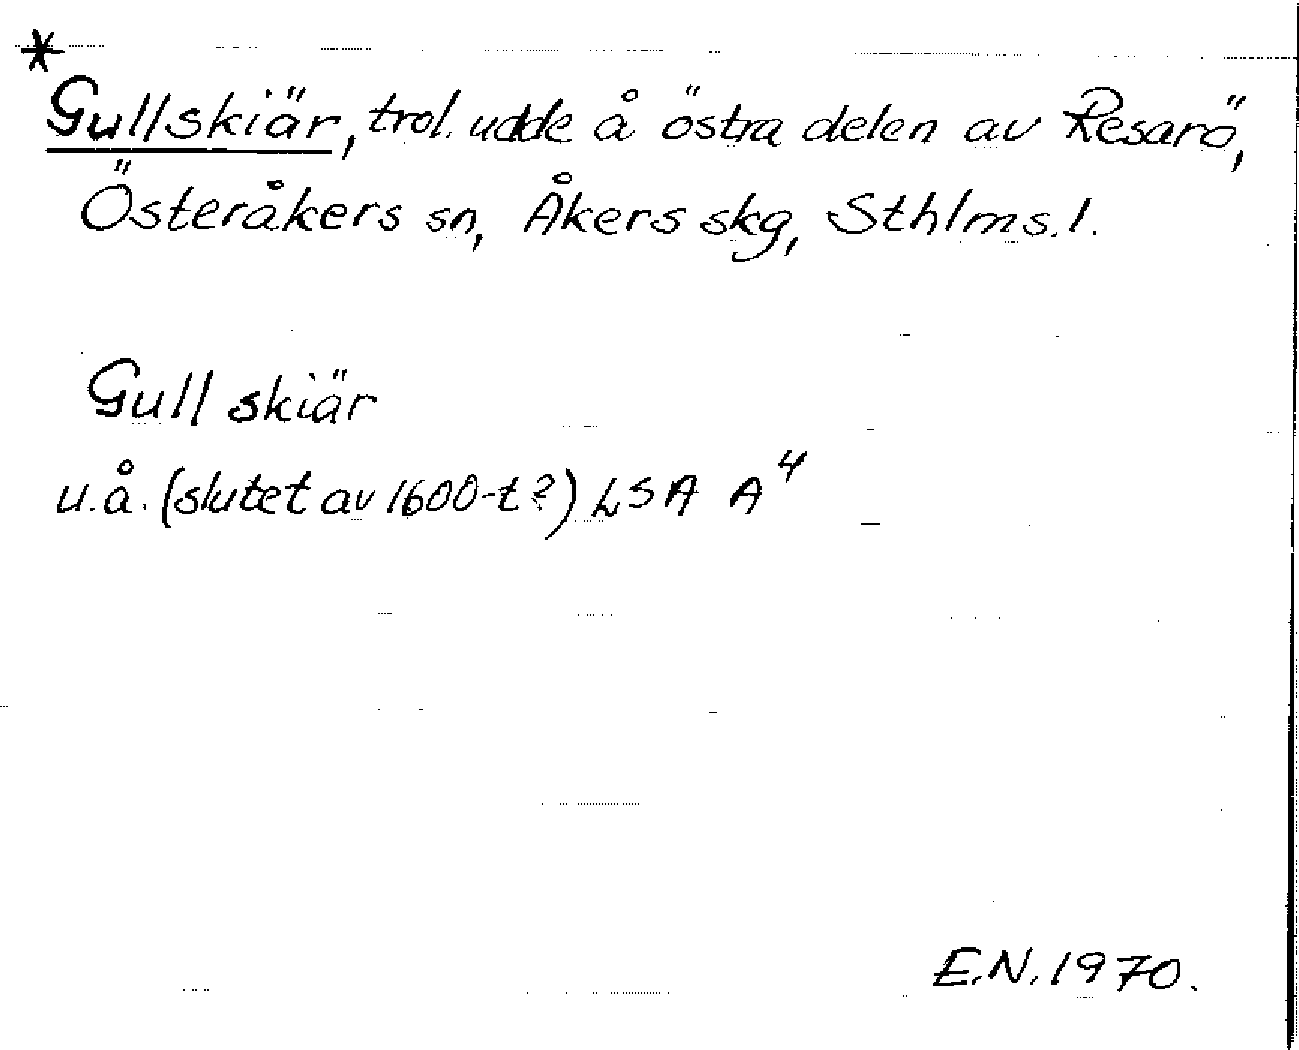 *
Gullskiär, trol. udde å östra delen av Resarö,
Österåkers sn, Åkers skg, Sthlms. l.
Gull skiär
u.å. (slutet av 1600-t?) LSA A⁴
E.N. 1970.